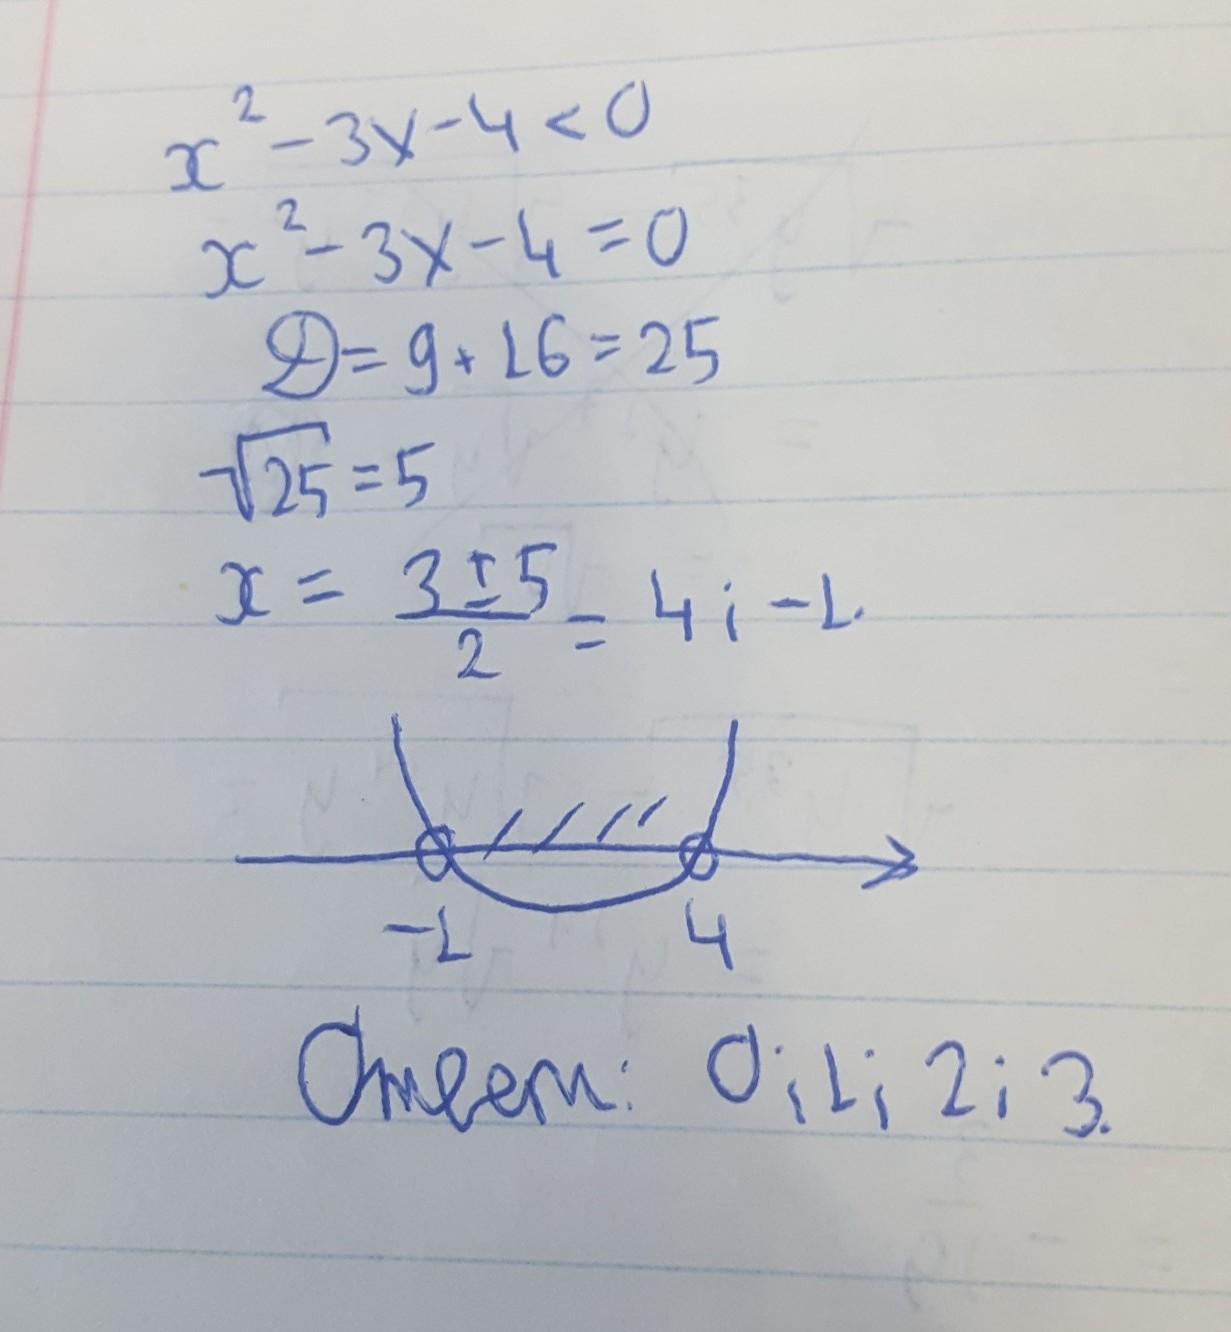 x² - 3x - 4 < 0
x² - 3x - 4 = 0
D = 9 + 16 = 25
√25 = 5
x = (3 ± 5)/2 = 4; -1.
-1 4
Ответ: 0; 1; 2; 3.